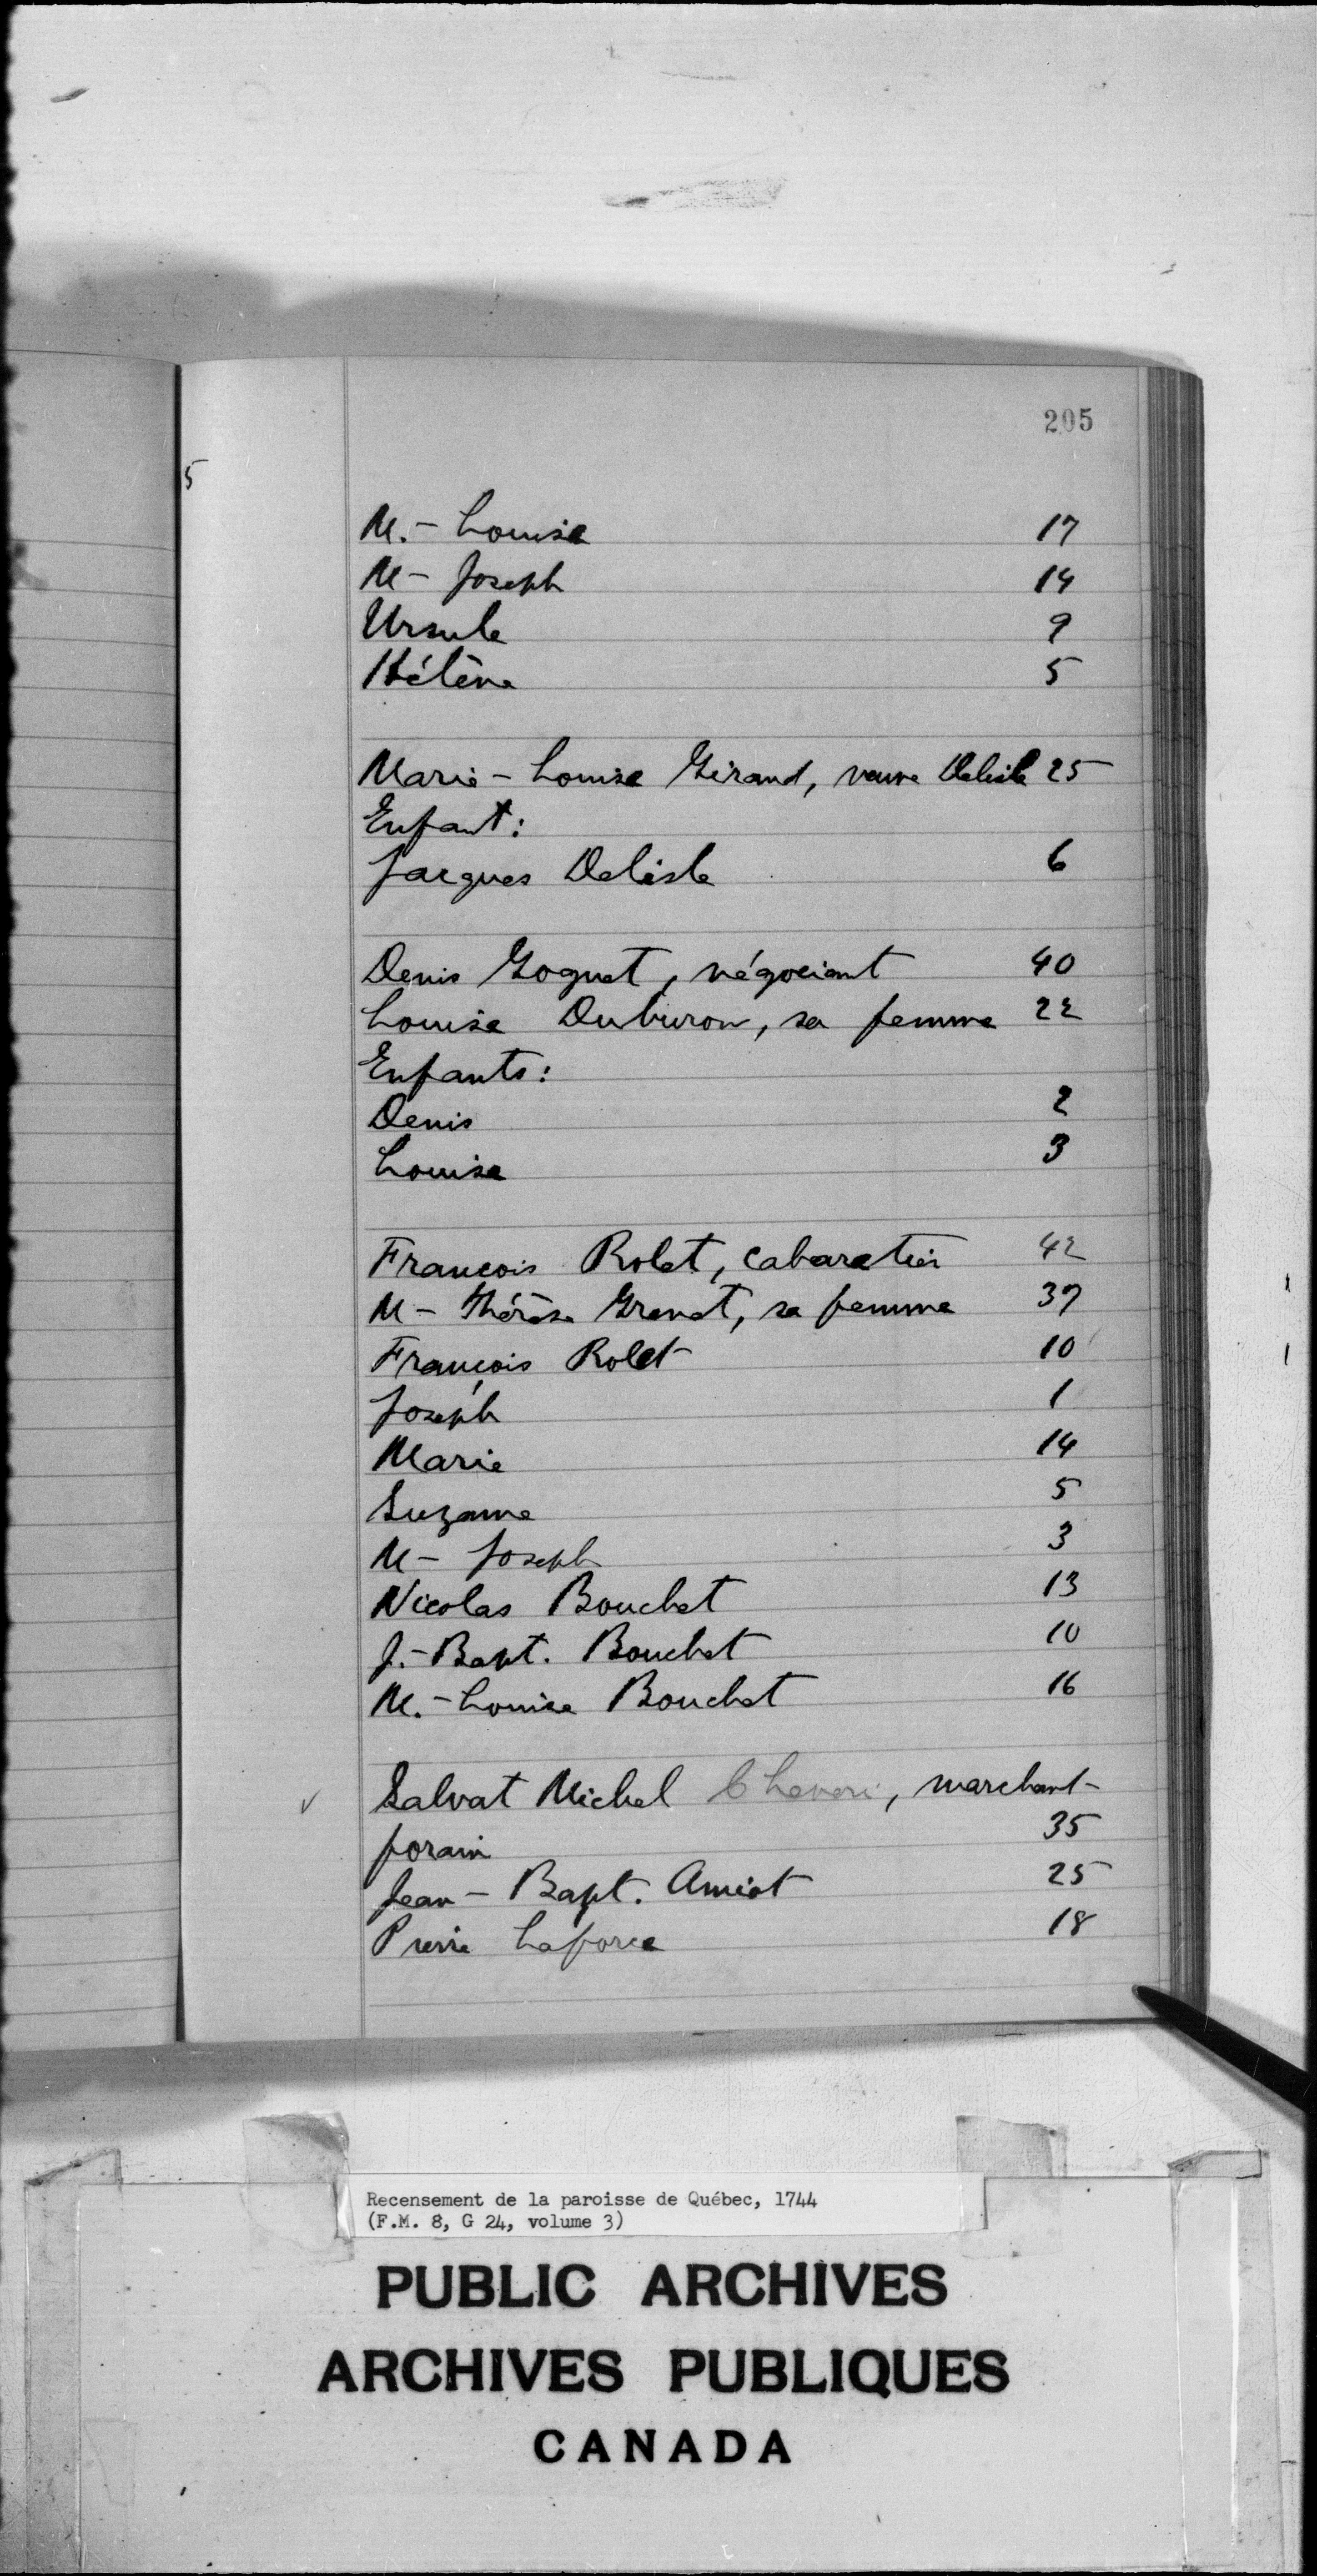 205
5
M.- Louise 17
M- Joseph 14
Ursule 9
Hélène 5
Marie-Louise Girand, veuve Delisle 25
Enfant:
Jacques Delisle 6
Denis Goguet, négociant 40
Louise Duburon, sa femme 22
Enfants:
Denis 2
Louise 3
François Rolet, cabaretier 42
M- Thérèse Grenet, sa femme 37
François Rolet 10
Joseph 1
Marie 14
Suzanne 5
M- Joseph 3
Nicolas Bouchet 13
J.-Bapt. Bouchet 10
M.-Louise Bouchet 16
Salvat Michel , marchant
forain 35
Jean-Bapt. Amiot 25
Pierre Laforce 18
Recensement de la paroisse de Québec, 1744
(F.M. 8, G 24, volume 3)
PUBLIC ARCHIVES
ARCHIVES PUBLIQUES
CANADA